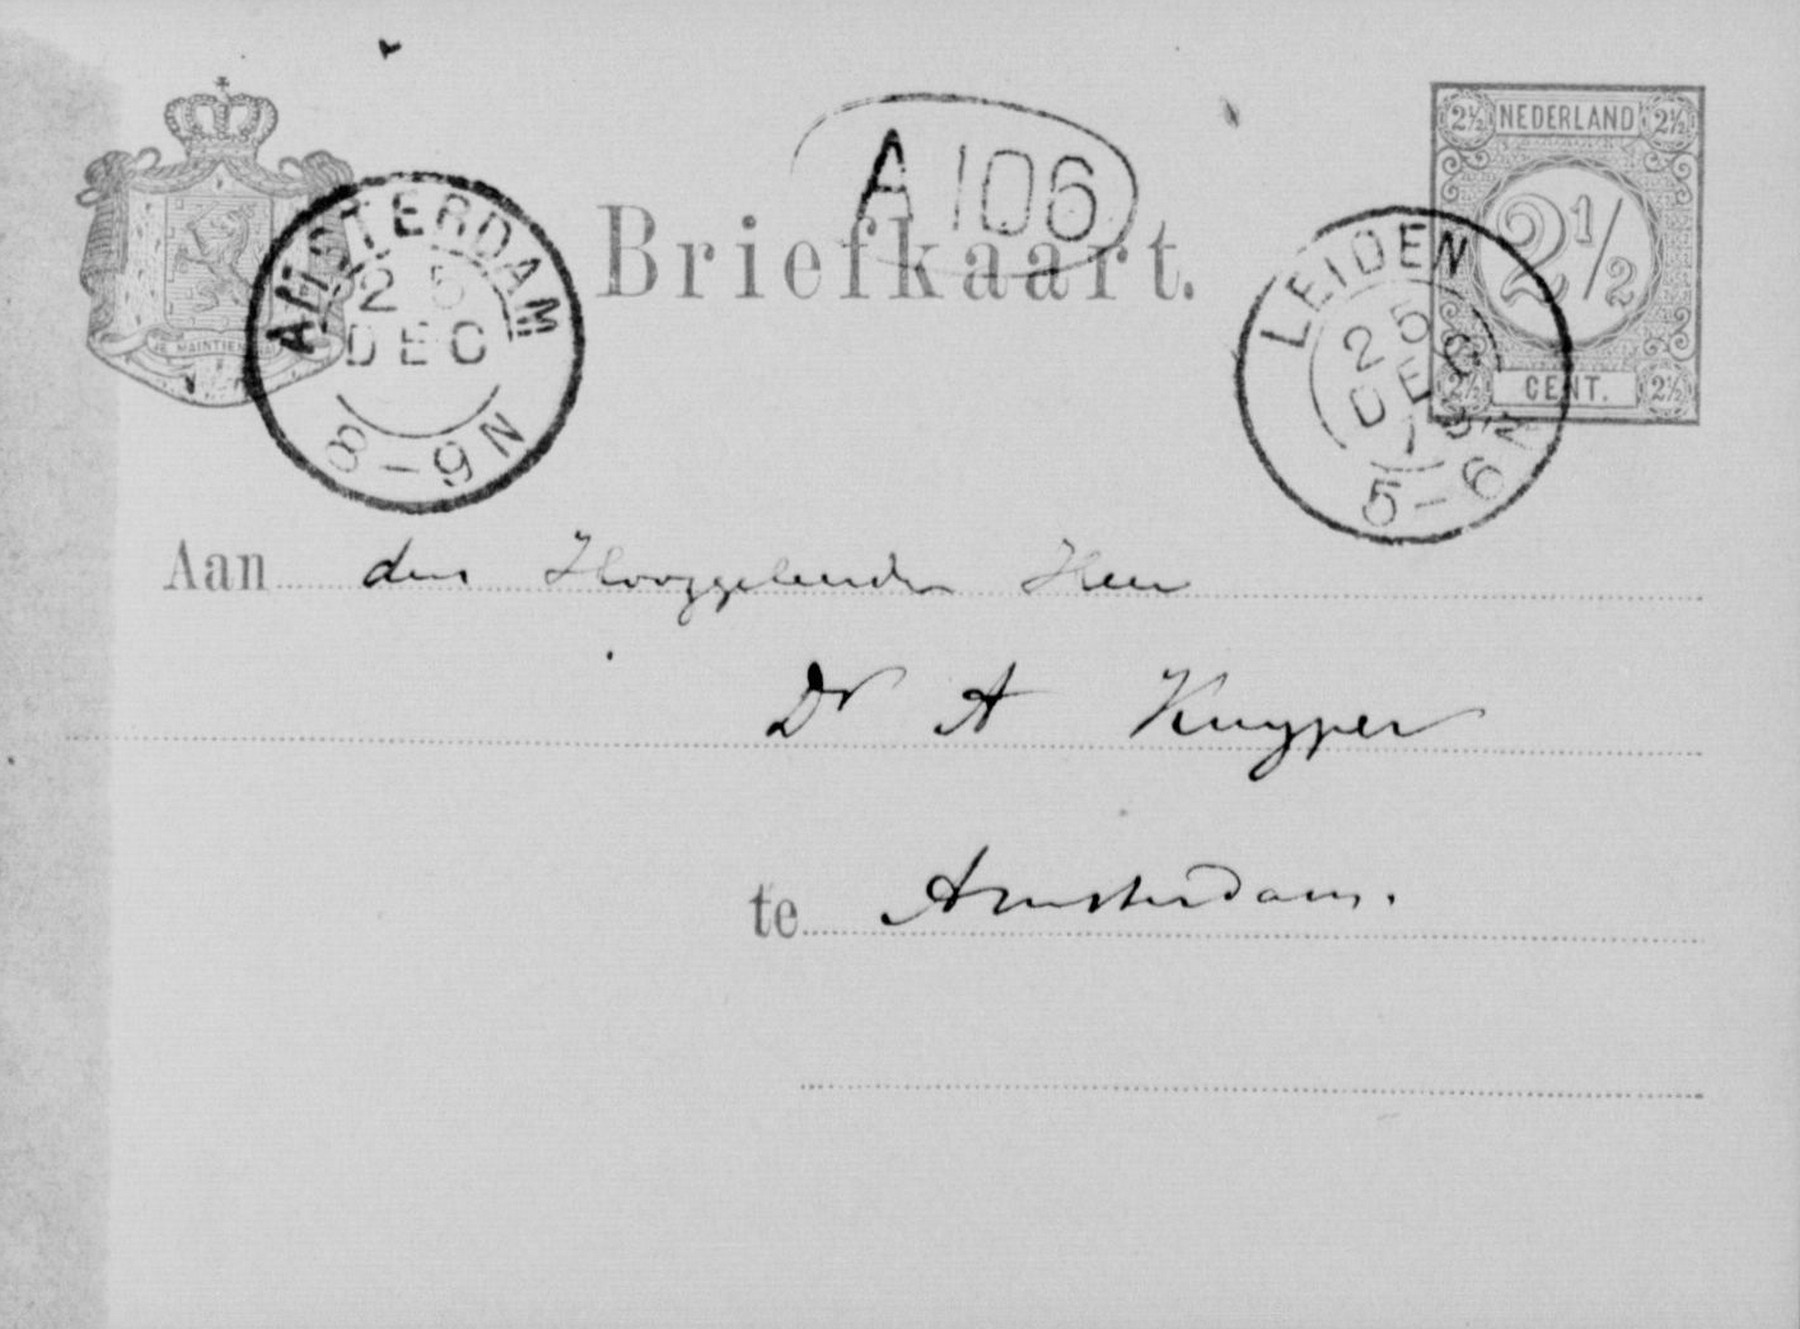 NEDERLAND
2½ 2½
2½
2½ CENT. 2½
JE MAINTIENDRAI
A 106
Briefkaart.
AMSTERDAM
25
DEC
8-9N
LEIDEN
25
DEC
5-6N
Aan den Hooggeleerden Heer
Dr A Kuyper
te Amsterdam.